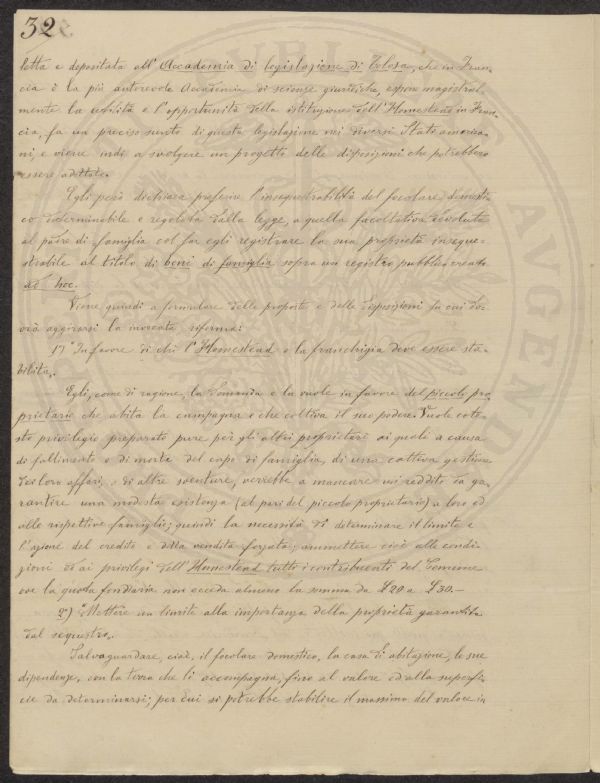 32
letta e depositata all'Accademia di legislazione di Tolosa, che in Fran-
cia è la più autorevole Accademia di scienze giuridiche, espone magistral-
mente la utilità e l'opportunità della istituzione dell'Homestead in Fran-
cia, fa un preciso sunto di questa legislazione nei diversi Stati america-
ni, e viene indi a svolgere un progetto delle disposizioni che potrebbero
essere adottate.
Egli però dichiara preferire l'insequestrabilità del focolare domesti-
co determinabile e regolata dalla legge, a quella facoltativa devoluta
al padre di famiglia col far egli registrare la sua proprietà inseque-
strabile al titolo di beni di famiglia sopra un registro pubblico creato
ad hoc.
Viene quindi a formulare delle proposte e delle disposizioni su cui do-
vrà aggirarsi la invocata riforma:
1º In favore di chi l'Homestead o la franchigia deve essere sta-
bilita.
Egli, come di ragione, la domanda e la vuole in favore del piccolo pro
prietario che abita la campagna e che coltiva il suo podere. Vuole cote-
sto privilegio preparato pure per gli altri proprietari ai quali a causa
di fallimento o di morte del capo di famiglia, di una cattiva gestione
dei loro affari, o di altre sventure, verrebbe a mancare un reddito da ga-
rantire una modesta esistenza (al pari del piccolo proprietario) a loro ed
alle rispettive famiglie; quindi la necessità di determinare il limite e
l'azione del credito e della vendita forzata; ammettere cioè alle condi-
zioni ed ai privilegi dell'Homestead tutti i contribuenti del Comune
ove la quota fondiaria non ecceda almeno la somma da £20 a £30.-
2º) Mettere un limite alla importanza della proprietà garantita
dal sequestro.
Salvaguardare, cioè, il focolare domestico, la casa di abitazione, le sue
dipendenze, con la terra che li accompagna, fino al valore ed alla superfi-
cie da determinarsi; per cui si potrebbe stabilire il massimo del valore in